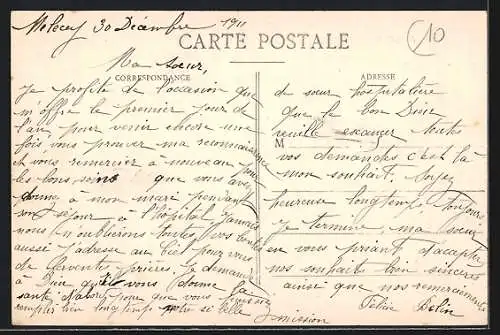 Molecey 30 Décembre 1911
10
CARTE POSTALE
CORRESPONDANCE
ADRESSE
Ma Sœur,
Je profite de l'occasion que
m'offre le premier jour de
l'an, pour venir encore une
fois vous prouver ma reconnaissance
et vous remercier à nouveau pour
les bons soins que vous avez
donné à mon mari pendant
son séjour à l'hôpital jamais
nous n'oublierons toutes vos bontés
aussi j'adresse au Ciel pour vous
de ferventes prières. Je demande
à Dieu qu'il vous donne la
santé d'abord, pour que vous puissiez
remplir bien longtemps votre si belle
mission
de sœur hospitalière
que le bon Dieu
M
veuille exaucer toutes
vos demandes c'est là
mon souhait. Soyez
heureuse longtemps toujours
Je termine, ma sœur
en vous priant d'accepter
nos souhaits bien sincères
ainsi que nos remerciements
Belin